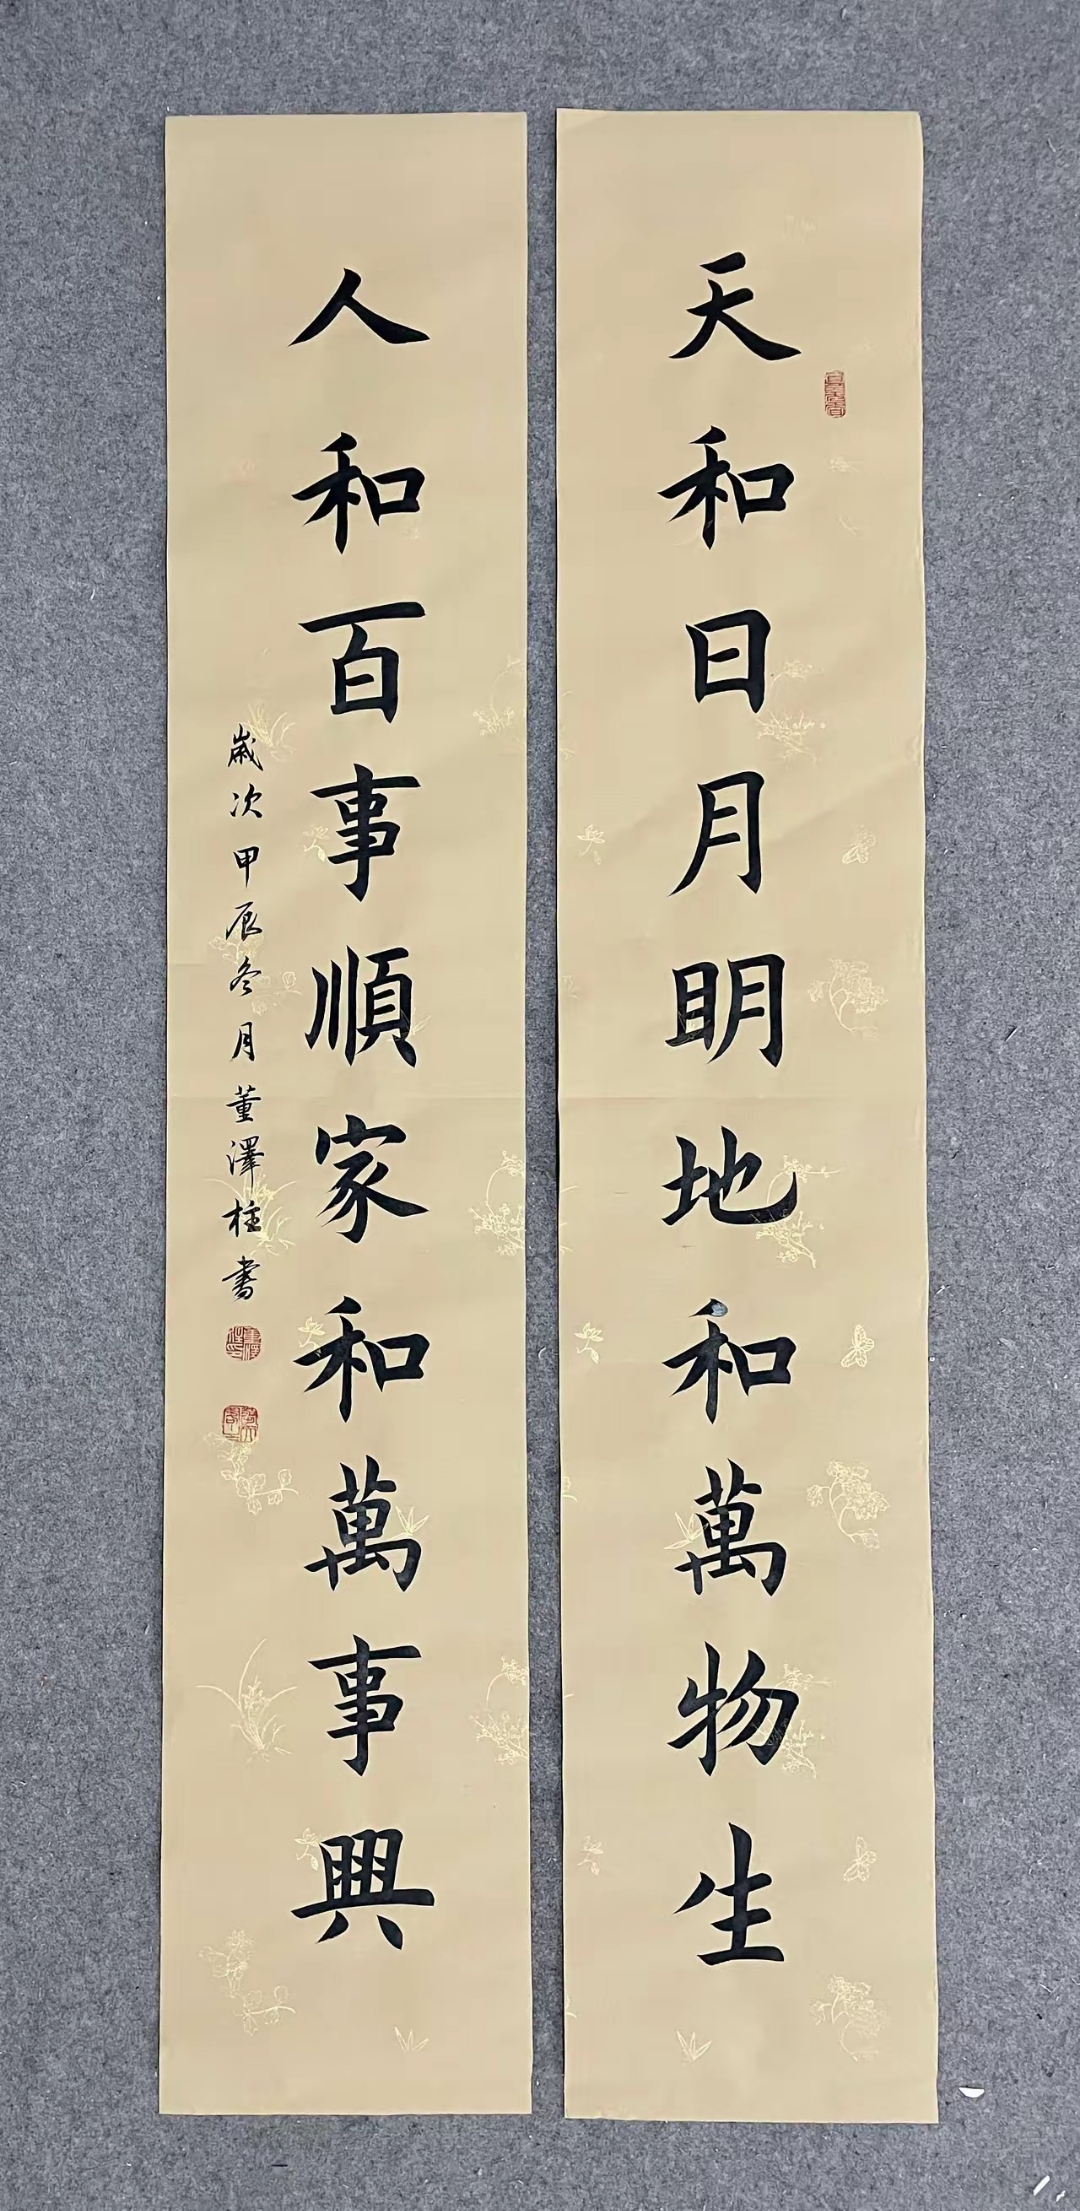 天和日月明地和萬物生
人和百事順家和萬事興
歲次甲辰冬月董澤柱書